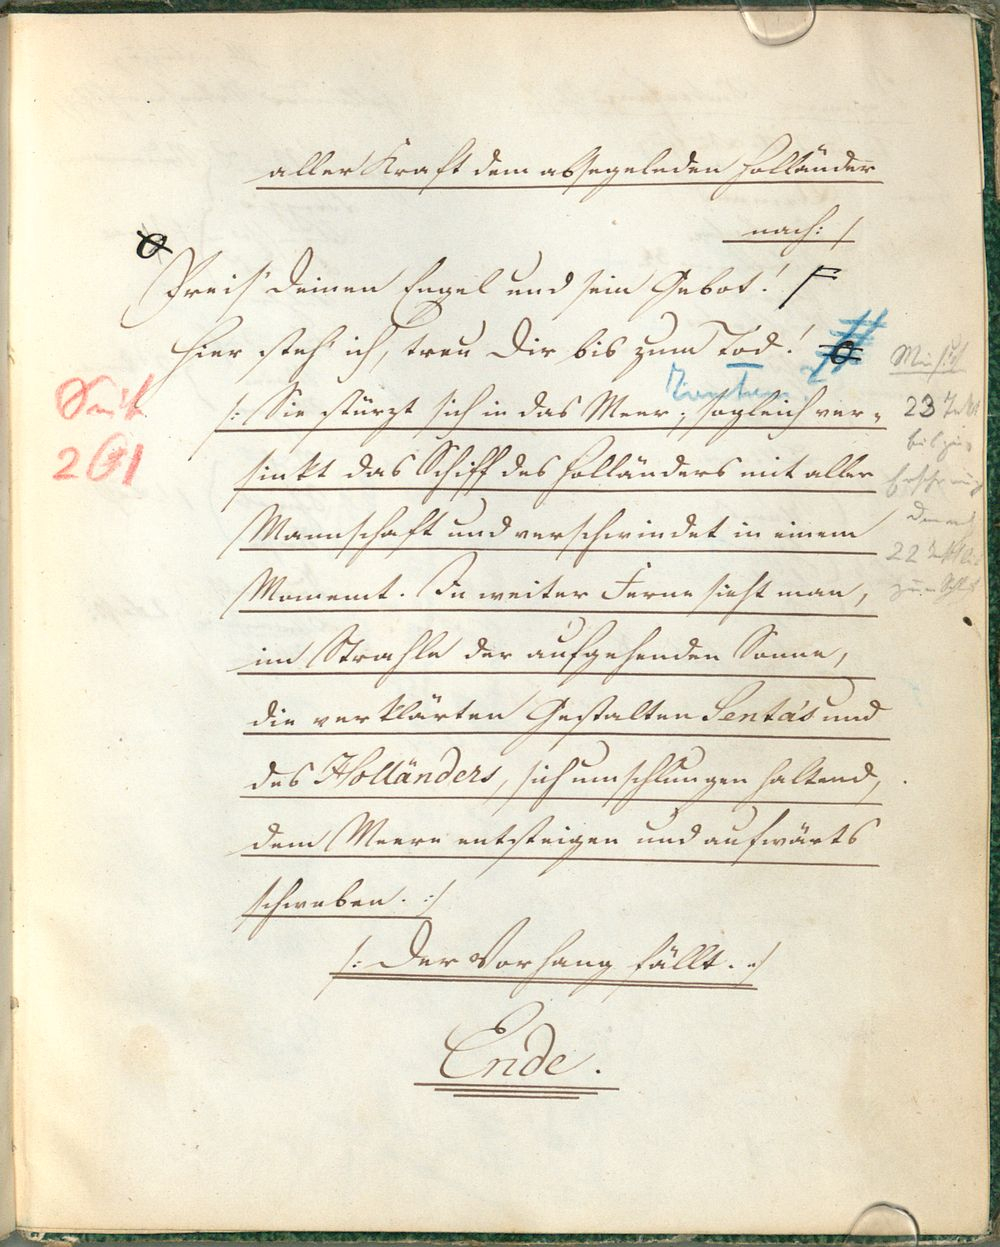 aller Kraft dem absegelnden Holländer
nach: /
Preis' Deinen Engel und sein Gebot!
Hier steh' ich, treu Dir bis zum Tod!
Seite
201
Musik
23 Takt
bis zur
22 Takt
zum Schluß
/: Sie stürzt sich in das Meer; sogleich ver-
sinkt das Schiff des Holländers mit aller
Mannschaft und verschwindet in einem
Moment. In weiter Ferne sieht man,
im Strahle der aufgehenden Sonne,
die verklärten Gestalten Senta's und
des Holländers, sich umschlungen haltend,
dem Meere entsteigen und aufwärts
schweben. :/
/: Der Vorhang fällt. :/
Ende.